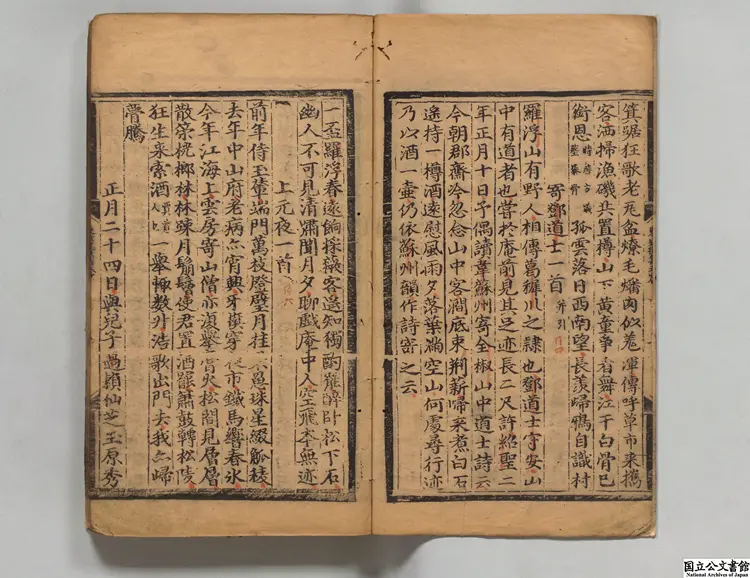 箕踞狂歌老瓦盆燎毛燔肉似羌渾傳呼草市來攜
客洒掃漁磯共置樽山下黃童爭看舞江干白骨已
銜恩孤雲落日西南望長羨歸鴉自識村
寄鄧道士一首并引
羅浮山有野人相傳葛稚川之隸也鄧道士守安山
中有道者也嘗於庵前見其足迹長二尺許紹聖二
年正月十日予偶讀韋蘇州寄全椒山中道士詩云
今朝郡齋冷忽念山中客澗底束荊薪歸來煮白石
遙持一樽酒遠慰風雨夕落葉滿空山何處尋行迹
乃以酒一壺仍依蘇州韻作詩寄之云
一盃羅浮春遠餉採薇客遥知獨酌罷醉卧松下石
幽人不可見清嘯聞月夕聊戲庵中人空飛本無迹
上元夜一首
前年侍玉輦端門萬枝燈璧月挂罳珠星綴觚稜
去年中山府老病亦宵興牙旗穿夜市鐵馬響春冰
今年江海上雲房寄山僧亦復舉膏火松間見層層
散策桄榔林林疎月鬅鬙使君置酒罷簫鼓轉松陵
狂生來索酒賈道人也一舉輒數升浩歌出門去我亦歸
瞢騰
正月二十四日與兒子過賴仙芝王原秀
国立公文書館
National Archives of Japan